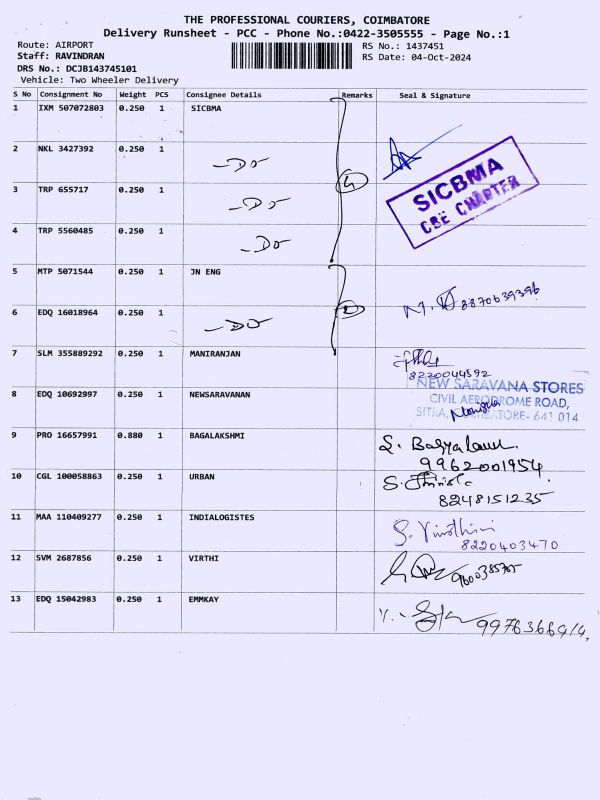 THE PROFESSIONAL COURIERS, COIMBATORE
Delivery Runsheet - PCC - Phone No.:0422-3505555 - Page No.:1
Route: AIRPORT RS No.: 1437451
Staff: RAVINDRAN RS Date: 04-Oct-2024
DRS No.: DCJB143745101
Vehicle: Two Wheeler Delivery
S No Consignment No Weight PCS Consignee Details Remarks Seal & Signature
1 IXM 507072803 0.250 1 SICBMA
2 NKL 3427392 0.250 1 -Do-
3 TRP 655717 0.250 1 -Do- 4 SICBMA
CBE CHARTER
4 TRP 5560485 0.250 1 -Do-
5 MTP 5071544 0.250 1 JN ENG
6 EDQ 16018964 0.250 1 -Do- 2 8870639396
7 SLM 355889292 0.250 1 MANIRANJAN
8220044592
8 EDQ 10692997 0.250 1 NEWSARAVANAN NEW SARAVANA STORES
CIVIL AERODROME ROAD,
SITRA, COIMBATORE- 641 014
9 PRO 16657991 0.880 1 BAGALAKSHMI
9962001954
10 CGL 100058863 0.250 1 URBAN
8248151235
11 MAA 110409277 0.250 1 INDIALOGISTES S. Vinothini
8220403470
12 SVM 2687856 0.250 1 VIRTHI
13 EDQ 15042983 0.250 1 EMMKAY